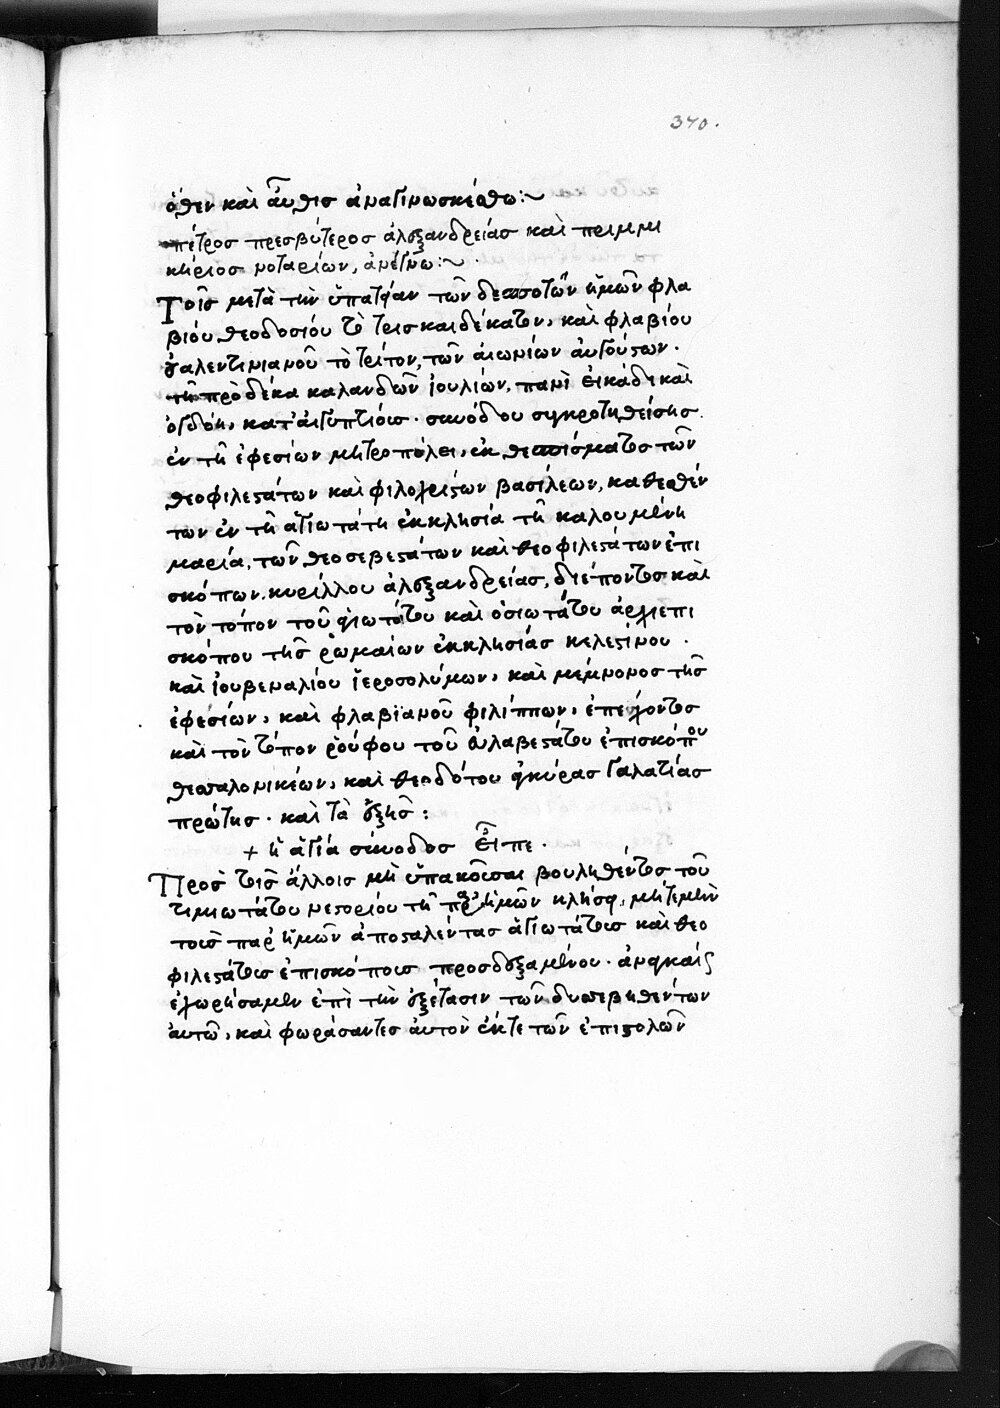 370.
ὅθεν καὶ αὖθις ἀναγινωσκέσθω:~
πέτρος πρεσβύτερος ἀλεξανδρείας καὶ πριμμι
κήριος νοταρίων, ἀνέγνω:~
Τοῖς μετὰ τὴν ὑπατείαν τῶν δεσποτῶν ἡμῶν φλα
βίου θεοδοσίου τὸ τρισκαιδέκατον, καὶ φλαβίου
βαλεντινιανοῦ τὸ τρίτον, τῶν αἰωνίων αὐγούστων.
τῇ πρὸ δέκα καλανδῶν ἰουλίων, παϊνὶ εἰκάδι καὶ
ὀγδόη, κατ' αἰγυπτίοις. συνόδου συγκροτηθείσης
ἐν τῇ ἐφεσίων μητροπόλει, ἐκ θεσπίσματος τῶν
θεοφιλεστάτων καὶ φιλοχρίστων βασιλέων, καθεσθέν
των ἐν τῇ ἁγιωτάτη ἐκκλησία τῇ καλουμένη
μαρία, τῶν θεοσεβεστάτων καὶ θεοφιλεστάτων ἐπι
σκόπων. κυρίλλου ἀλεξανδρείας, διέποντος καὶ
τὸν τόπον τοῦ ἁγιωτάτου καὶ ὁσιωτάτου ἀρχιεπι
σκόπου τῆς ῥωμαίων ἐκκλησίας κελεστίνου.
καὶ ἰουβεναλίου ἱεροσολύμων, καὶ μέμνονος τῆς
ἐφεσίων, καὶ φλαβϊανοῦ φιλίππων, ἐπέχοντος
καὶ τὸν τόπον ῥούφου τοῦ εὐλαβεστάτου ἐπισκόπου
θεσσαλονικέων, καὶ θεοδότου ἀγκύρας γαλατίας
πρώτης. καὶ τὰ ἑξῆς:
+ ἡ ἁγία σύνοδος εἶπε.
Πρὸς τοῖς ἄλλοις μὴ ὑπακοῦσαι βουληθέντος τοῦ
τιμιωτάτου νεστορίου τῇ παρ' ἡμῶν κλήσει, μήτε μὴν
τοὺς παρ' ἡμῶν ἀποσταλέντας ἁγιωτάτους καὶ θεο
φιλεστάτους ἐπισκόπους προσδεξαμένου. ἀναγκαίως
ἐχωρήσαμεν ἐπὶ τὴν ἐξέτασιν τῶν δυσσεβηθέντων
αὐτῶ, καὶ φωράσαντες αὐτὸν ἔκτε τῶν ἐπιστολῶν